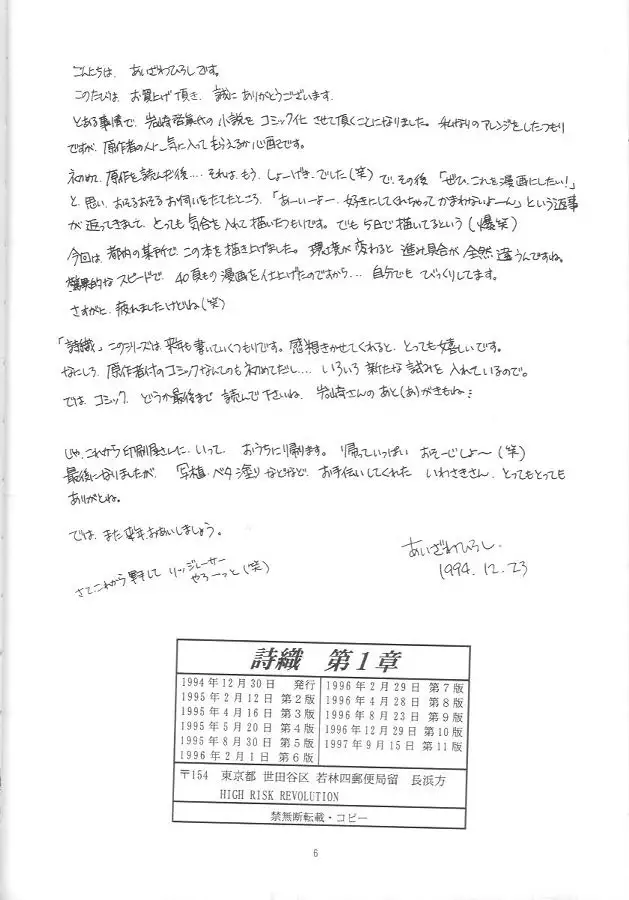 こんにちは、あいざわひろしです。
このたびは、お買上げ頂き、誠にありがとうございます。
とある事情で、岩崎啓眞代の小説をコミック化させて頂くことになりました。私なりのアレンジをしたつもり
ですが、原作者の人に気に入ってもらえるか心配です。
初めて、原作を読んだ後‥‥それは、もう、しょーげきでした(笑)で、その後「ぜひ、これを漫画にしたい!」
と、思い、おそるおそるお伺いをたてたところ、「あーいーよー、好きにしてくれちゃってかまわないよーん」という返事
が返ってきまして、とっても気合を入れて描いたつもりです。でも5日で描いてるという(爆笑)
今回は、都内の某所で、この本を描き上げました。環境が変わると、進み具合が全然違うんですね。
驚異的なスピードで、40頁もの漫画を仕上げたのですから‥‥自分でもびっくりしてます。
さすがに、疲れましたけどね(笑)
「詩織」このシリーズは、来年も書いていくつもりです。感想きかせてくれると、とっても嬉しいです。
なにしろ、原作者付のコミックなんてのも初めてだし‥‥いろいろ新たな試みを入れているので。
では、コミック、どうか最後まで読んで下さいね、岩崎さんのあと(あ)がきもね
じゃ、これから印刷屋さんに、いって、おうちに帰ります。帰っていっぱいおそーじしよ〜(笑)
最後になりましたが、写植・ベタ塗りなどなど、お手伝いしてくれたいわさきさん、とってもとっても
ありがとね。
では、また来年、おあいしましょう。
さて、これから リッジレーサー
やろーっと(笑)
あいざわひろし
1994.12.23
詩織 第1章
1994年12月30日 発行
1995年2月12日 第2版
1995年4月16日 第3版
1995年5月20日 第4版
1995年8月30日 第5版
1996年2月1日 第6版
1996年2月29日 第7版
1996年4月28日 第8版
1996年8月23日 第9版
1996年12月29日 第10版
1997年9月15日 第11版
〒154 東京都 世田谷区 若林四郵便局留 長浜方
HIGH RISK REVOLUTION
禁無断転載・コピー
6